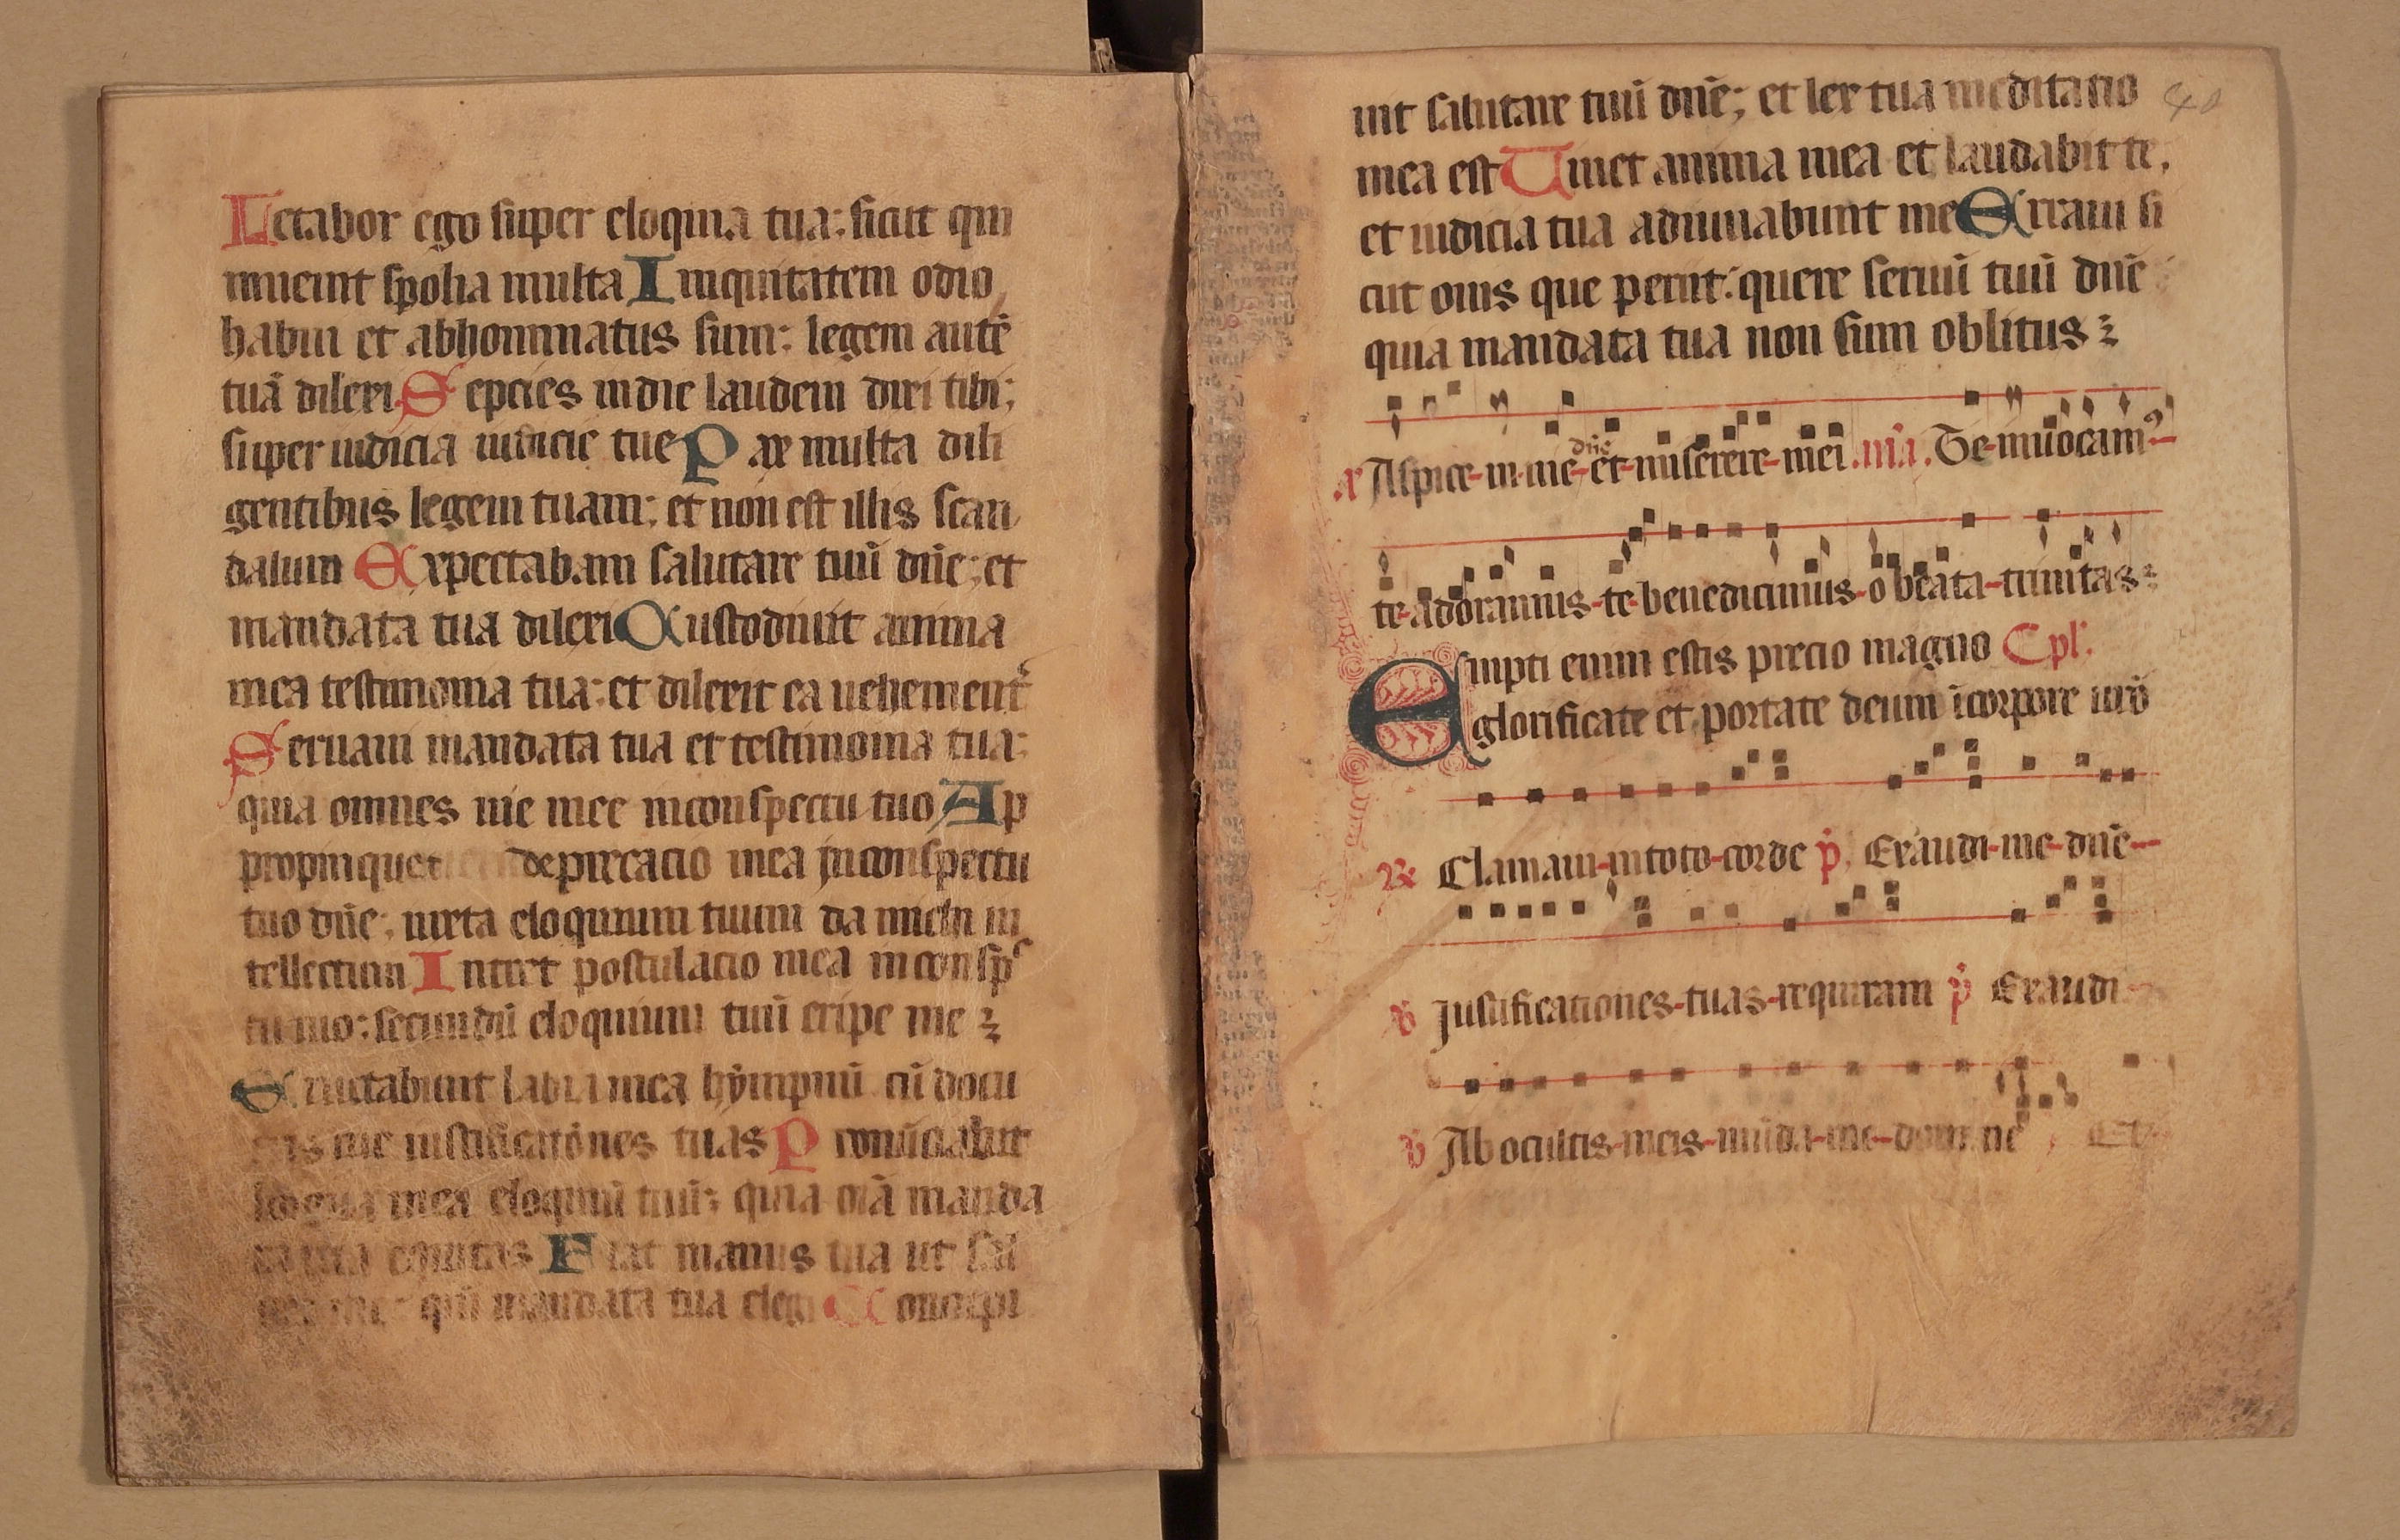 Letabor ego super eloquia tua: sicut qui
inuenit spolia multa Iniquitatem odio
habui et abhominatus sum: legem autē
tuā dilexi. Sepcies in die laudem dixi tibi;
super iudicia iusticie tue Pax multa dili
gentibus legem tuam; et non est illis scan
dalum Expectabam salutare tuū dn̄e; et
mandata tua dilexi Custodiuit anima
mea testimonia tua: et dilexit ea uehement͛
Seruaui mandata tua et testimonia tua:
quia omnes uie mee in conspectu tuo Ap
propinquet deprecacio mea in conspectu
tuo dn̄e; iuxta eloquium tuum da michi in
tellectum Intret postulacio mea in consp̄c
tu tuo: secundū eloquium tuū eripe me
Eructabunt labia mea hympnū cū docu
eris me iustificationes tuas Pronūciabit
lingua mea eloquiū tuū; quia oīa manda
ta tua equitas Fiat manus tua ut sal
uet me: qm̄ mandata tua elegi Concupi
uit salutare tuū dn̄e; et lex tua meditatio 40
mea est Uiuet anima mea et laudabit te,
et iudicia tua adiuuabunt me Erraui si
cut ouis que periit: quere seruū tuū dn̄e
quia mandata tua non sum oblitus
dn̄e
.r Aspice-in-me-et-miserere-mei .mīa. Te-inuocam⁹-
te-adoramus-te-benedicimus-o beata-trinitas
Empti enim estis precio magno Cpl'.
glorificate et portate deum ī corpore ur̄o
℞ Clamaui-in toto-corde p̄. Exaudi-me-dn̄e-
℣ Iustificationes-tuas-requiram p̄ Exaudi
℣ Ab ocultis-meis-mūda-me-domine , Et